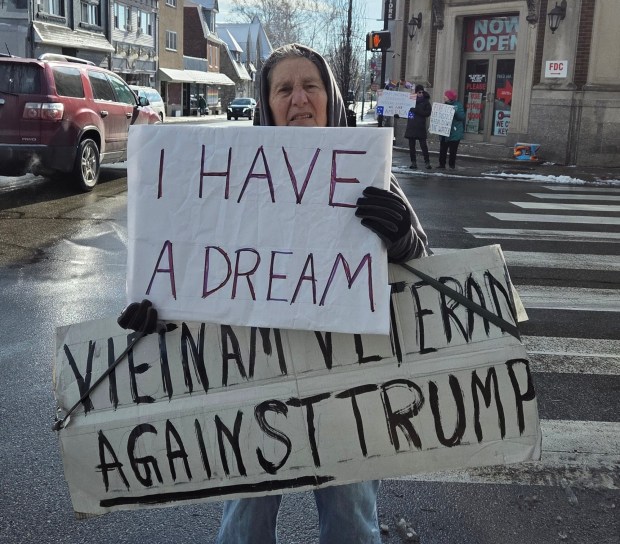 NOW
OPEN
FDC
PLEASE
I HAVE
A DREAM
VIETNAM VETERAN
AGAINST TRUMP